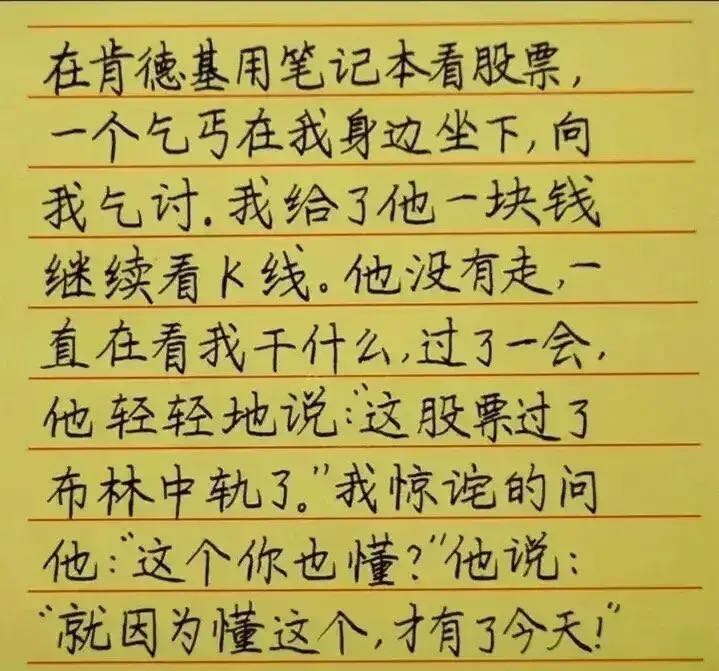 在肯德基用笔记本看股票,
一个乞丐在我身边坐下,向
我乞讨.我给了他一块钱
继续看K线。他没有走,一
直在看我干什么,过了一会,
他轻轻地说:“这股票过了
布林中轨了。”我惊诧的问
他:“这个你也懂?”他说:
“就因为懂这个,才有了今天!”